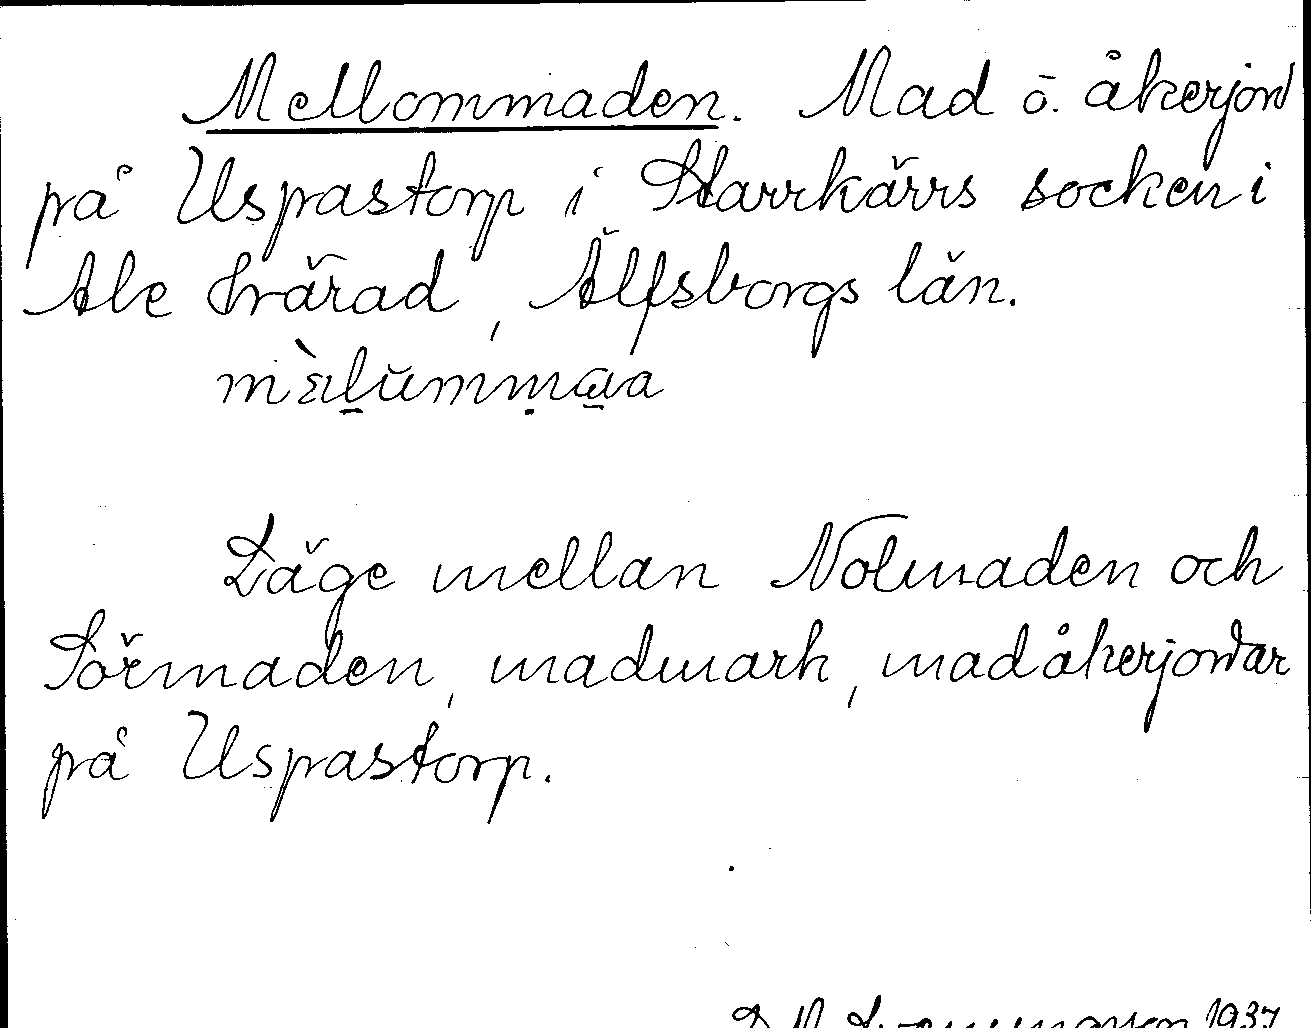 Mellommaden. Mad o. åkerjord
på Uspastorp i Starrkärrs socken i
Ale härad, Älfsborgs län.

Läge mellan Nolmaden och
Sörmaden, madmark, madåkerjordar
på Uspastorp.
1937